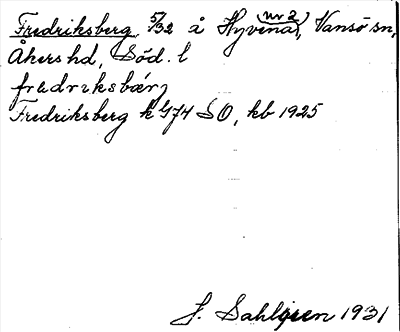 Fredriksberg 5/32 å Hyvena (nr 2), Vansö sn,
Åkers hd, Söd. l
fredriksbærj
Fredriksberg k G74 SO, kb 1925
J. Sahlgren 1931